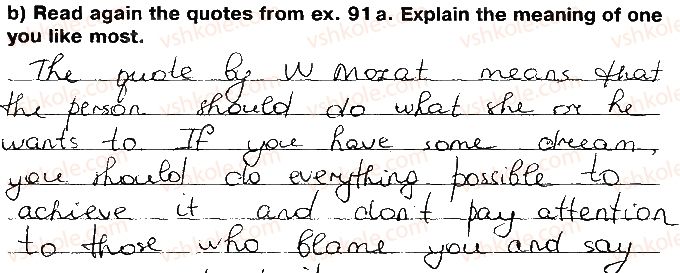 b) Read again the quotes from ex. 91 a. Explain the meaning of one
you like most.
The quote by W Mozat means that
the person should do what she or he
wants to If you have some dream,
you should do everything possible to
achieve it and don't pay attention
to those who blame you and say